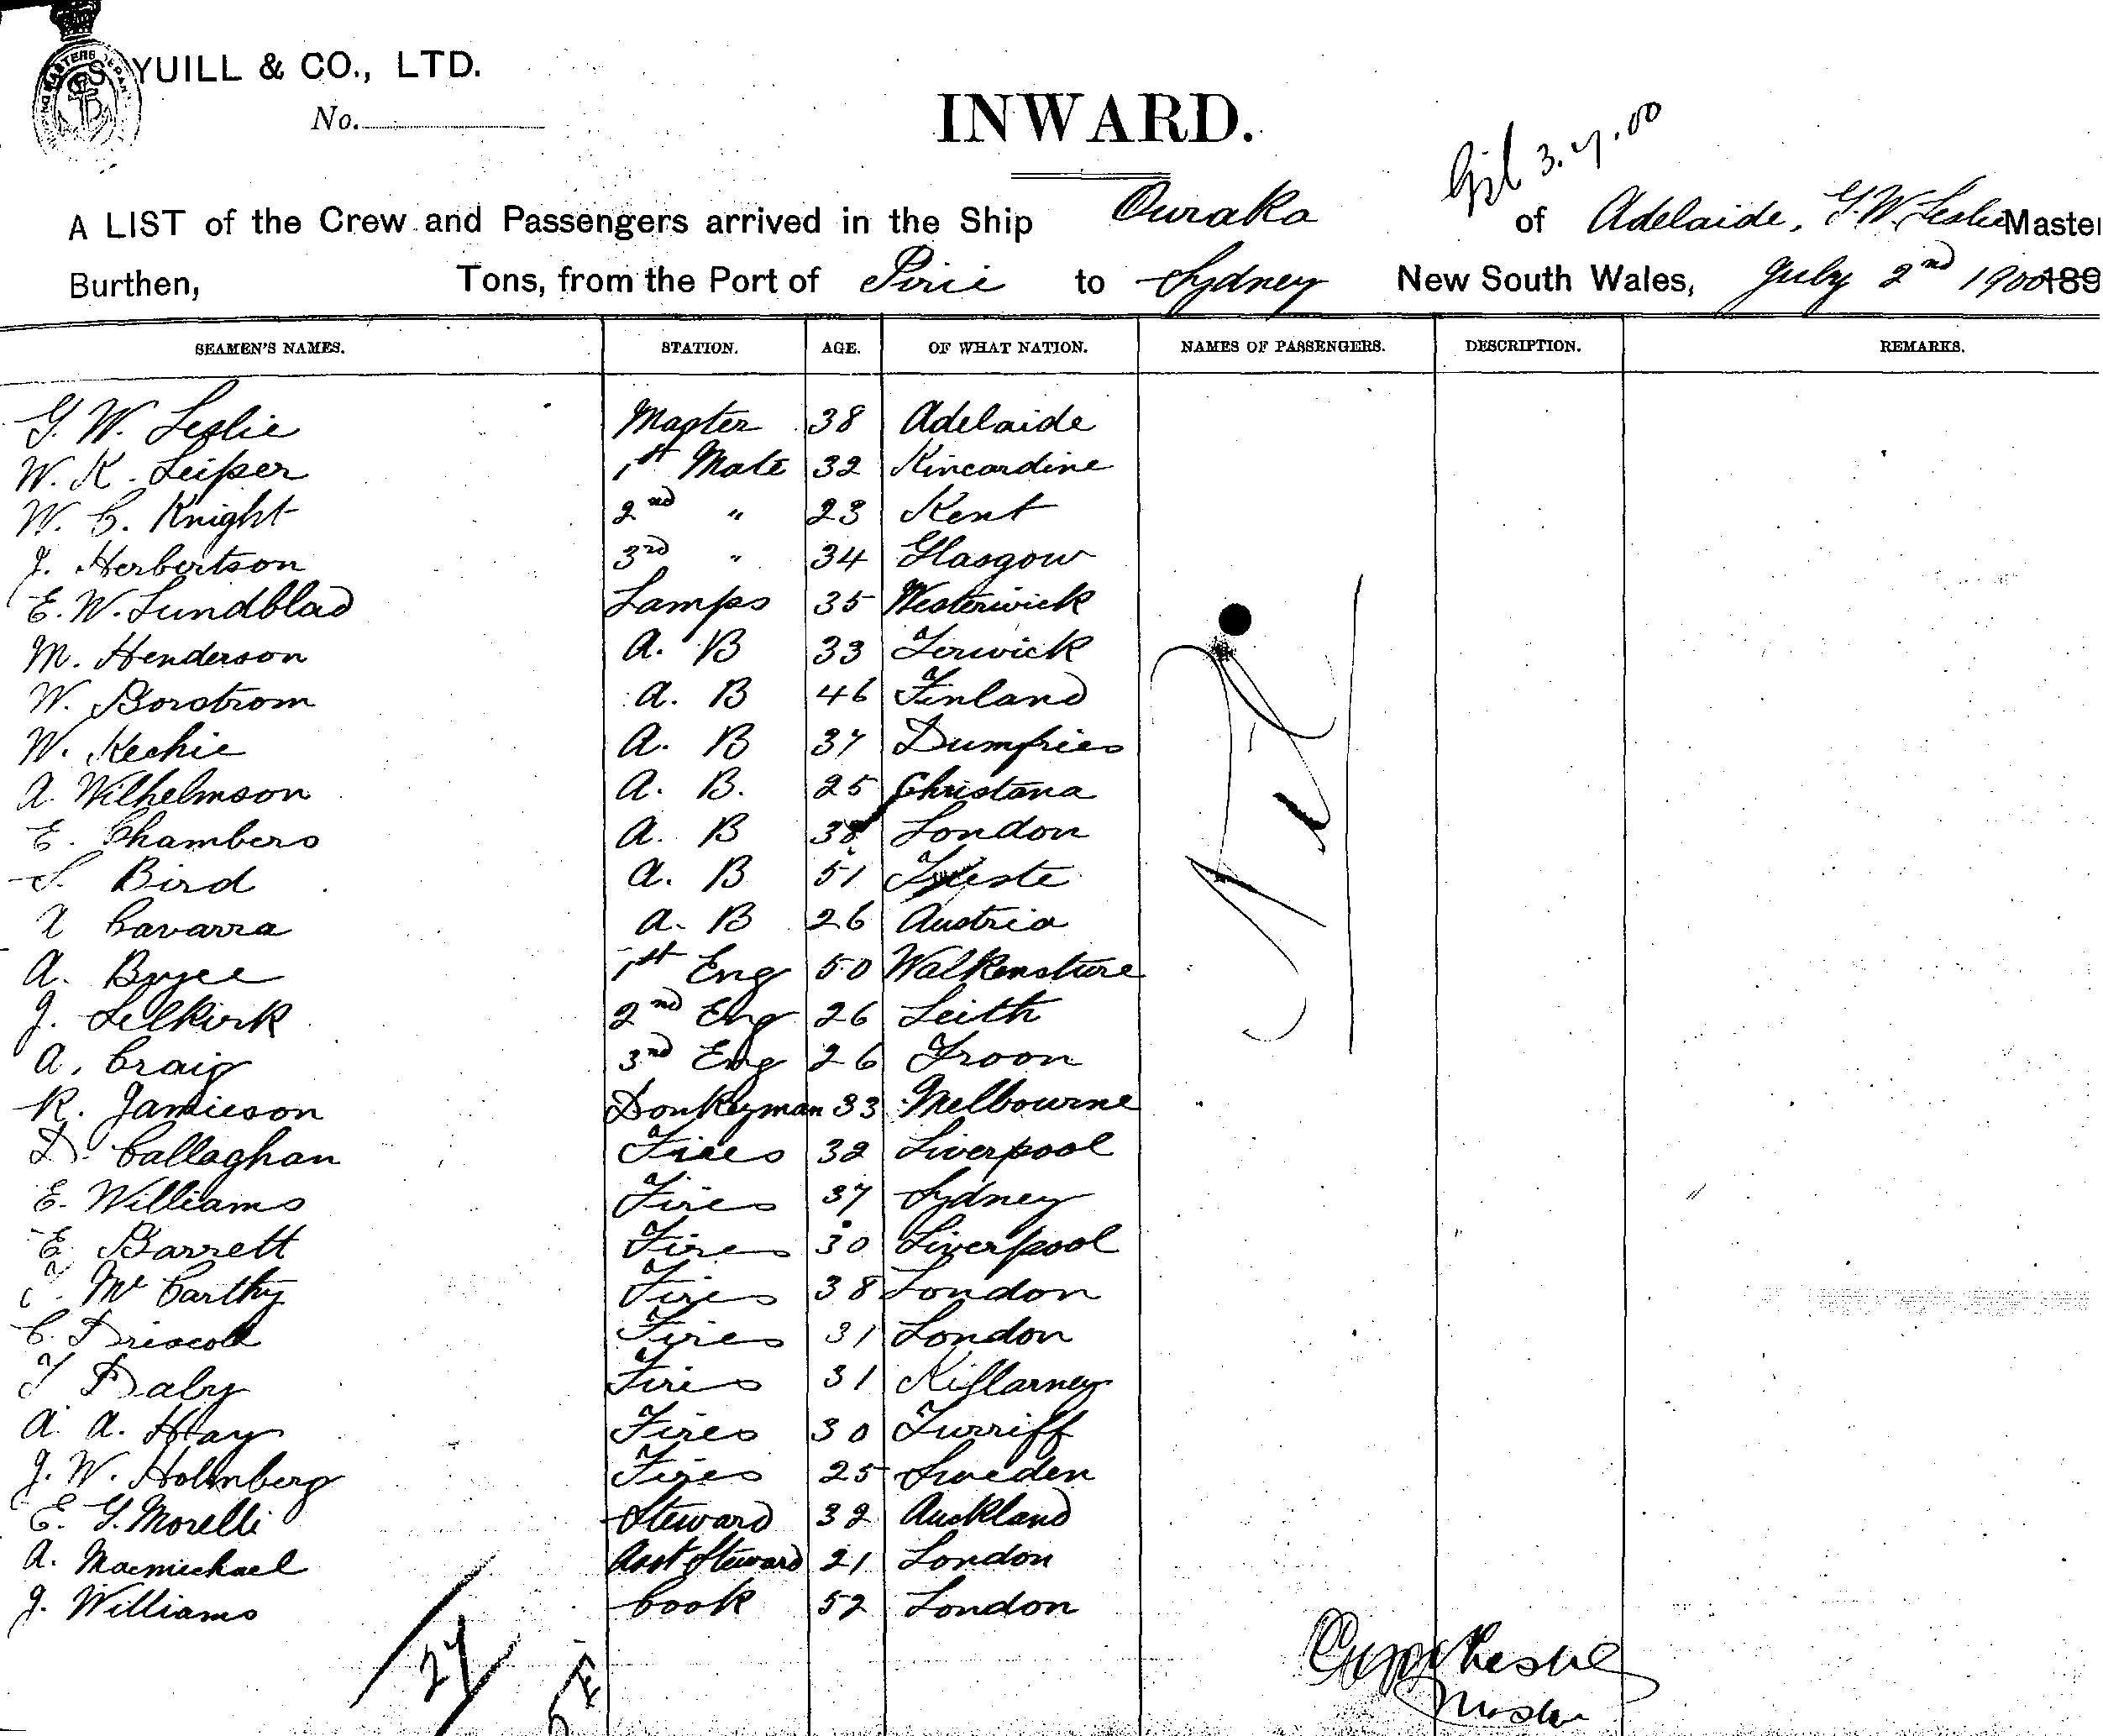 YUILL & CO., LTD.
No.
INWARD.
3.7.00
A LIST of the Crew and Passengers arrived in the Ship Ouraka of Adelaide, G. W. Leslie Master
Burthen, Tons, from the Port of Pirie to Sydney New South Wales, July 2nd 1900 189
SEAMEN'S NAMES. STATION. AGE. OF WHAT NATION. NAMES OF PASSENGERS. DESCRIPTION. REMARKS.
G. W. Leslie Master 38 Adelaide
W. K. Leiper 1st Mate 32 Kincardine
W. C. Knight 2nd " 23 Kent
J. Herbertson 3rd " 34 Glasgow
E. W. Lundblad Lamps 35 Westerwick
M. Henderson A. B 33 Lerwick
W. Borstrom A. B 46 Finland
W. Kechie A. B 37 Dumfries
A. Wilhelmson A. B. 25 Christana
E. Chambers A. B 38 London
S. Bird A. B 51
Cavarra A. B 26 Austria
A. Bryce 1st Eng 50
J. Selkirk 2nd Eng 26 Leith
A. Craig 3rd Eng 26 Troon
R. Jamieson Donkeyman 33 Melbourne
D. Callaghan Fires 32 Liverpool
E. Williams Fires 37 Sydney
E. Barrett Fires 30 Liverpool
J. McCarthy Fires 38 London
C. Driscoll Fires 31 London
T Daly Fires 31 Killarney
A. A. Hay Fires 30 Turriff
J. W. Holmberg Fires 25 Sweden
E. G. Morelli Steward 32 Auckland
A. Macmichael Asst Steward 21 London
J. Williams Cook 52 London
Nil
27
Leslie
Master